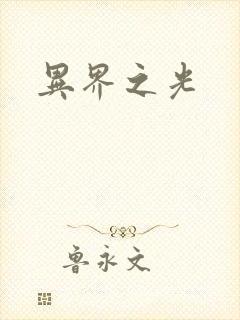 異界之光
魯永文